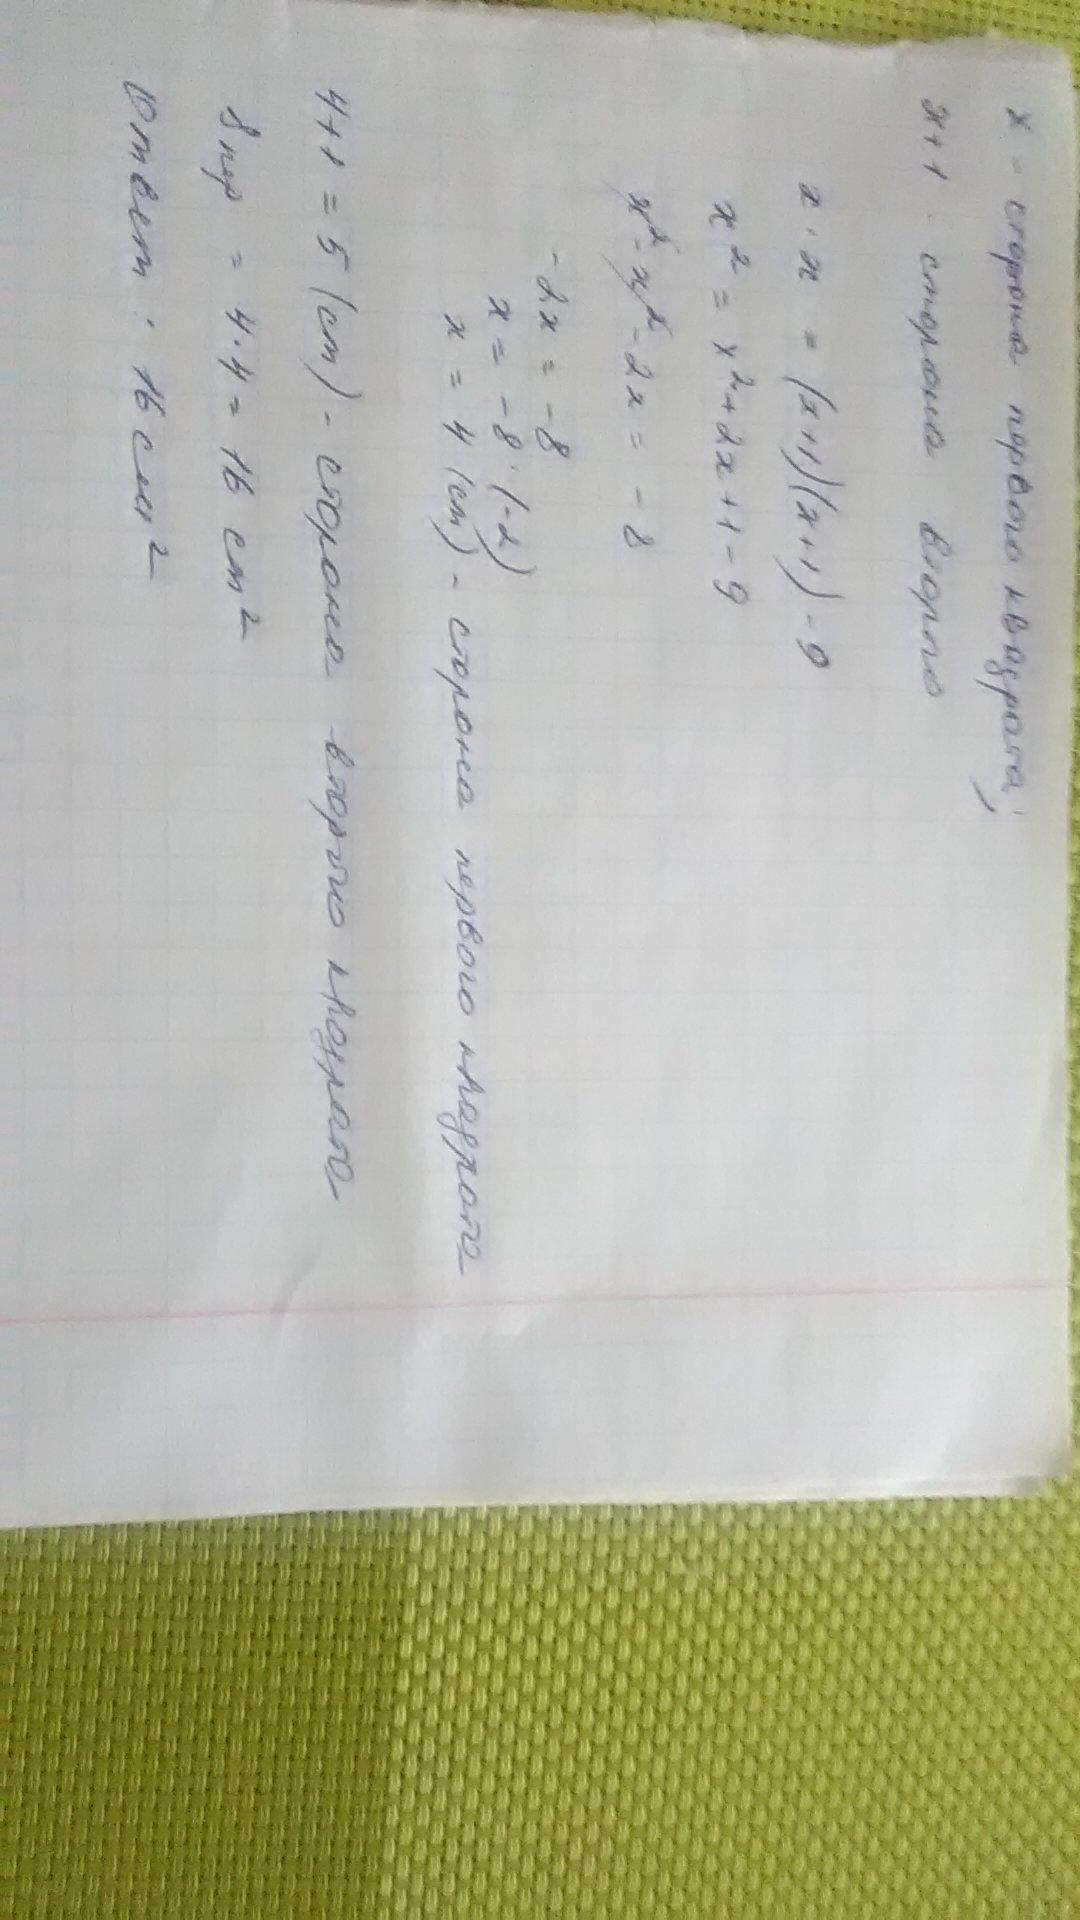 x - сторона первого квадрата;
x+1 - сторона второго
x · x = (x+1)(x+1) - 9
x² = x² + 2x + 1 - 9
x² - x² - 2x = - 8
-2x = -8
x = -8 · (-2)
x = 4 (см) - сторона первого квадрата
4+1 = 5 (см) - сторона второго квадрата,
Sпер = 4·4 = 16 см²
Ответ: 16 см²